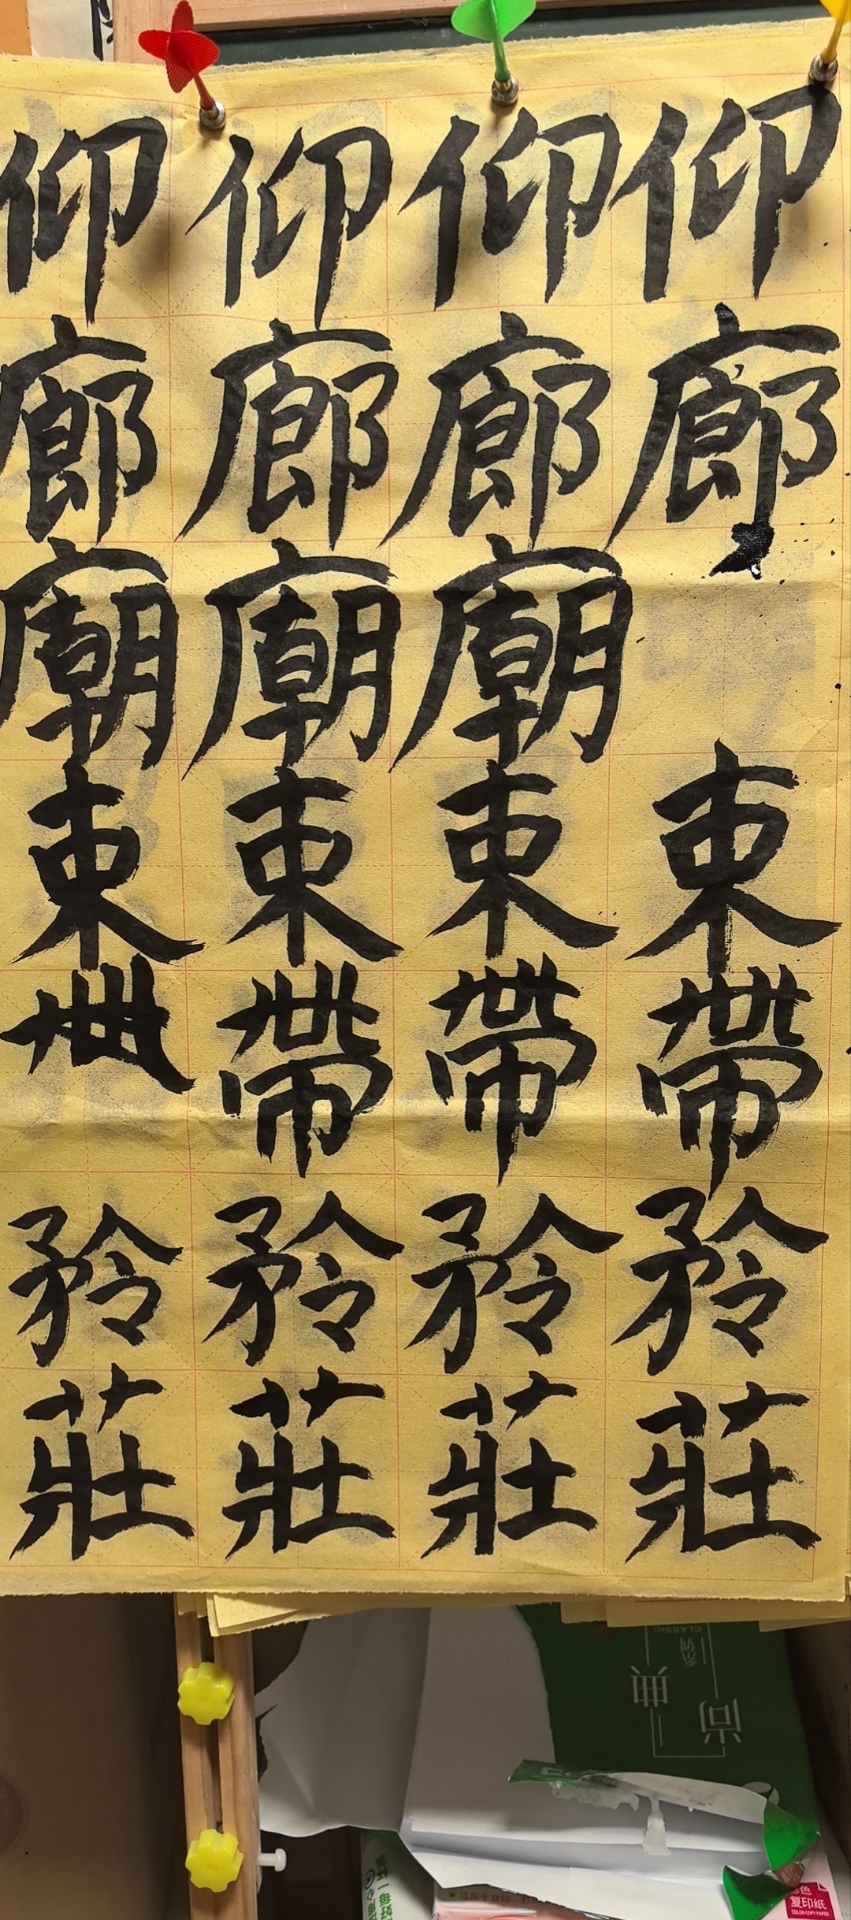 仰廊束帶矜莊
仰廊廟束帶矜莊
仰廊廟束帶矜莊
仰廊廟束矜莊
尚典
系列
CLASSIC
复印纸
COLOR COPY PAPER